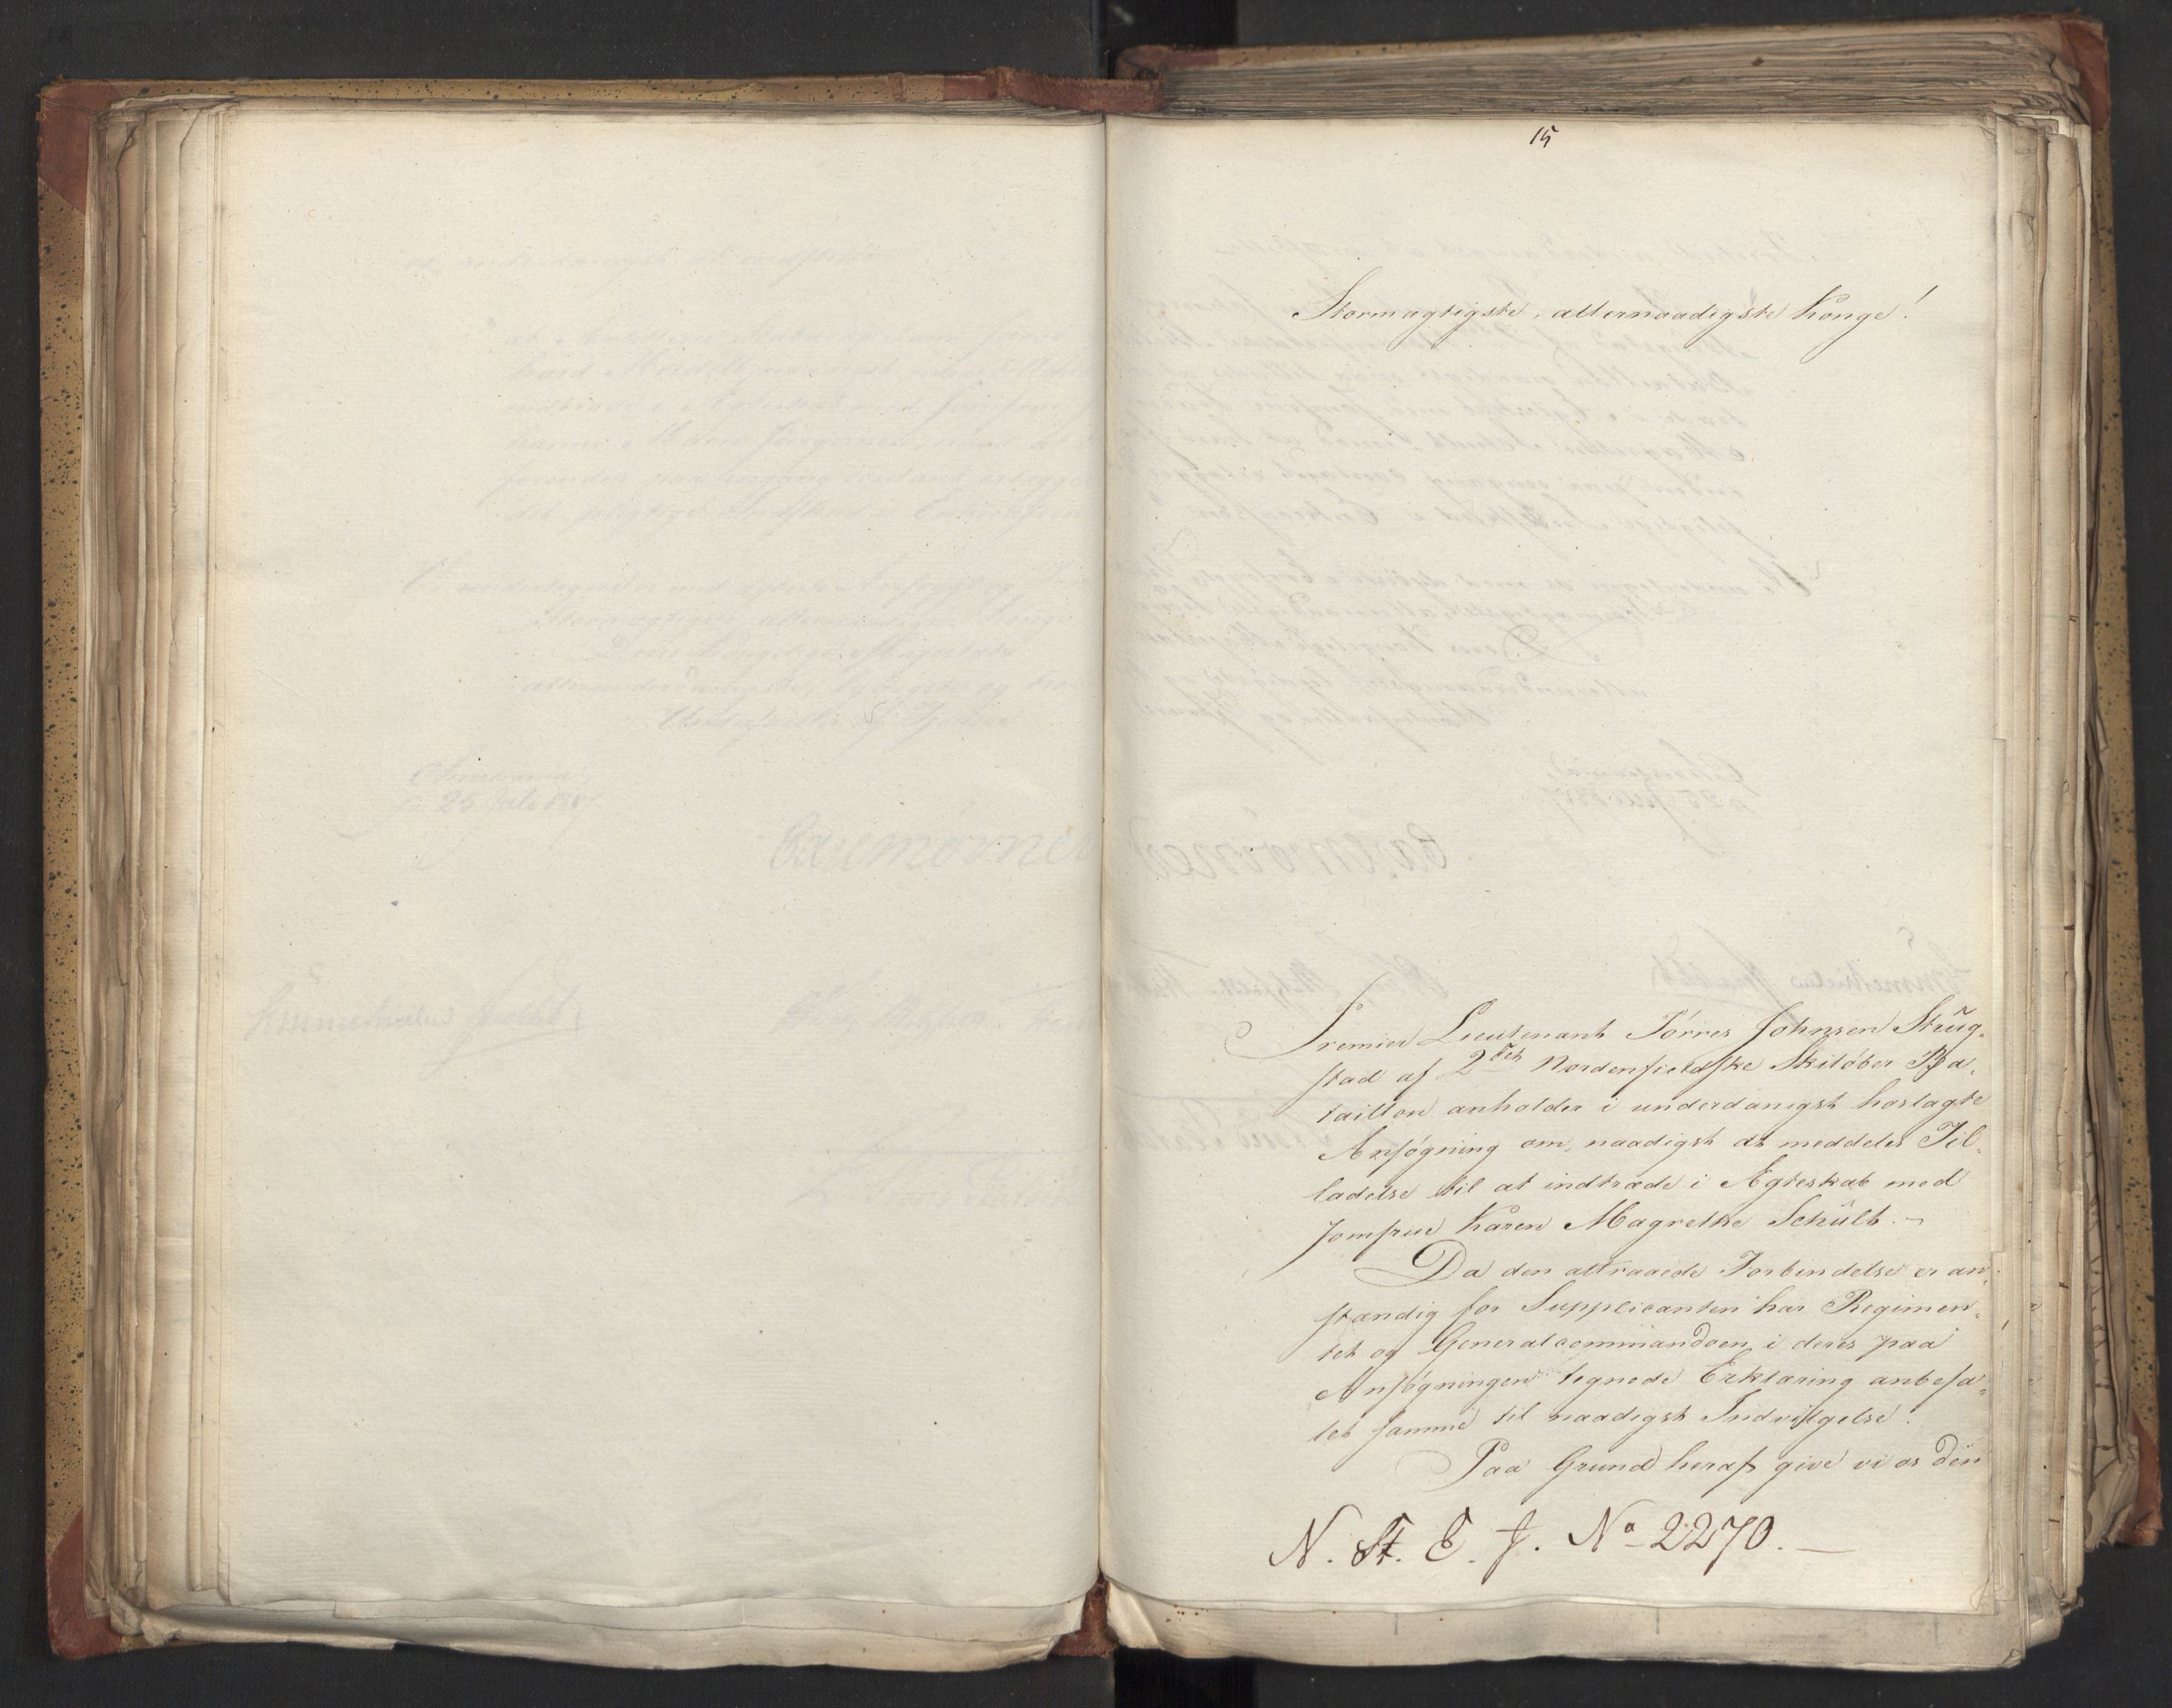 15
Stormægtigste, allernaadigste Konge!
Premier Lieutenant Törres Johnsen Strüg-
stad af 2det Nordenfieldske Skilöber Ba-
taillon anholder i underdanigst hoslagte
Ansögning om, naadigst at meddeles Til-
ladelse til at indtræde i Ægteskab med
Jomfrue Karen Magrethe Schült. -
Da den attraaede Forbindelse er an-
stændig for Supplicanten har Regimen-
tet og Generalcommandoen i deres paa
Ansögningen tegnede Erklæring anbefa-
let samme til naadigst Indvilgelse.
Paa Grund heraf give vi os den
N. St. E. J. No 2270. -